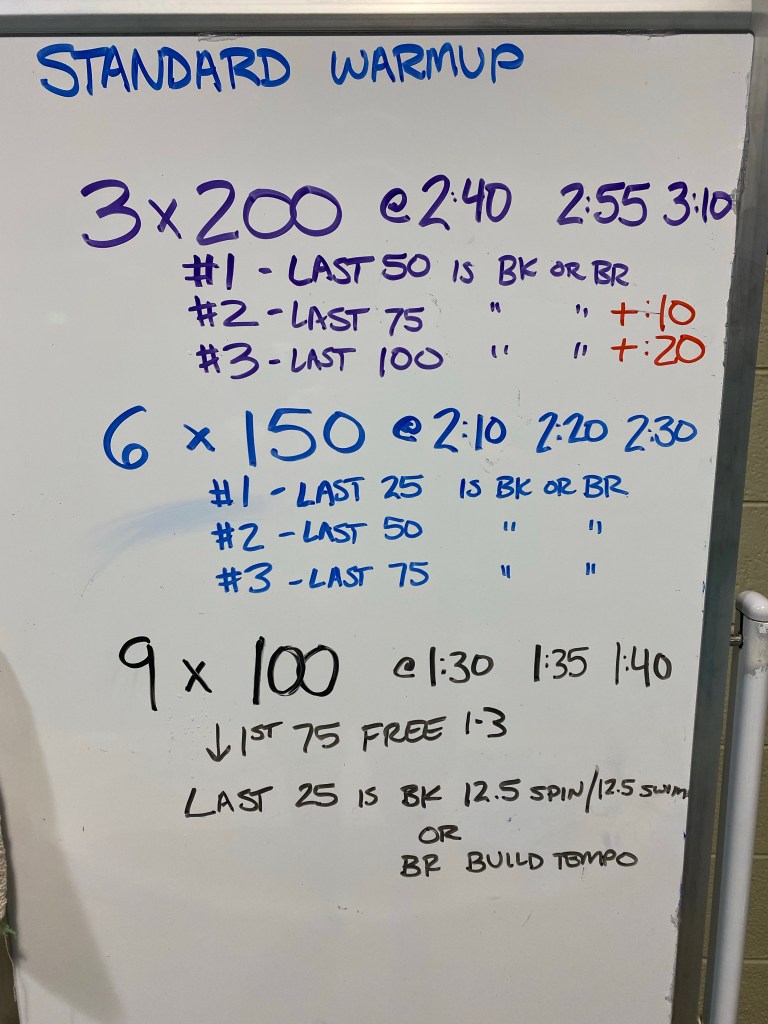 STANDARD WARMUP
3 x 200 @ 2:40 2:55 3:10
#1 - LAST 50 IS BK OR BR
#2 - LAST 75 " " +:10
#3 - LAST 100 " " +:20
6 x 150 @ 2:10 2:20 2:30
#1 - LAST 25 IS BK OR BR
#2 - LAST 50 " "
#3 - LAST 75 " "
9 x 100 @ 1:30 1:35 1:40
↓ 1ST 75 FREE 1-3
LAST 25 IS BK 12.5 SPIN/12.5 SWIM
OR
BR BUILD TEMPO